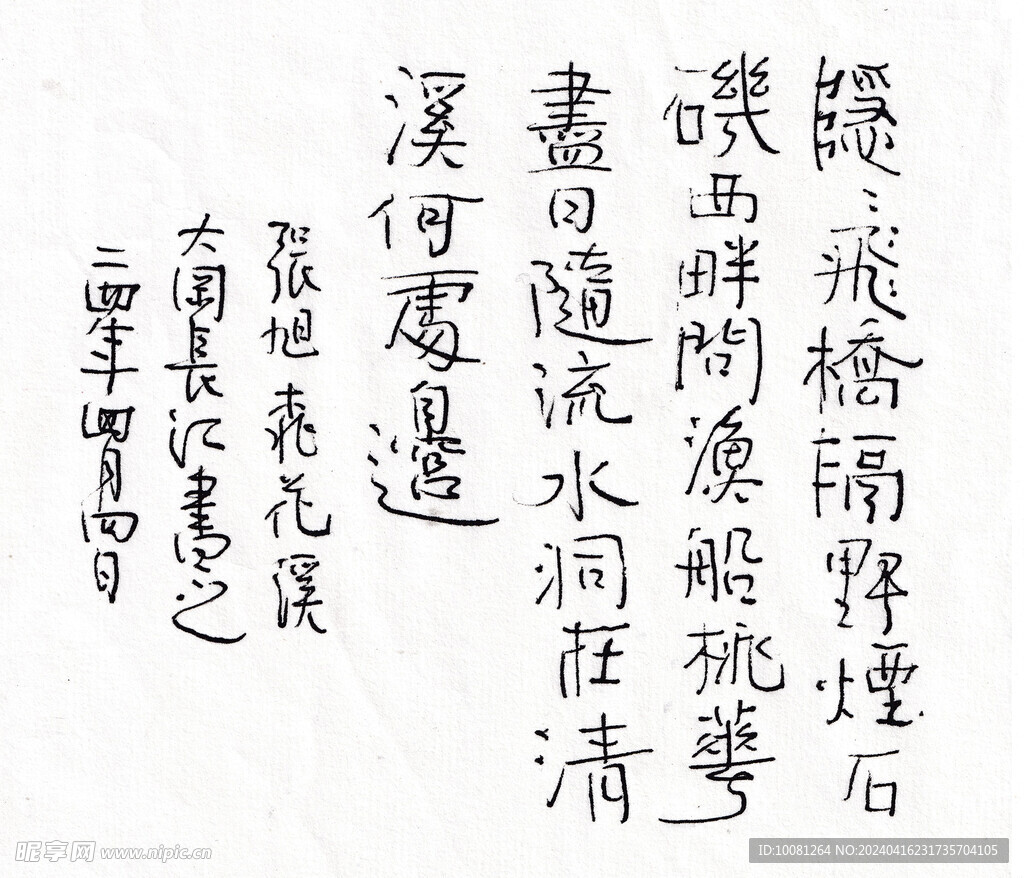 隱〻飛橋隔野煙石
磯西畔問漁船桃華
盡日隨流水洞在清
溪何處邊
張旭桃花溪
大長江書之
二四年四月四日
昵享网 www.nipic.cn
ID:10081264 NO:20240416231735704105